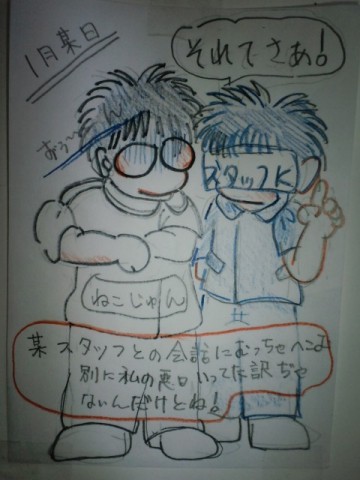 1月某日
それでさあ!
おう〜
スタッフK
ねこじゅん
某スタッフとの会話にむっちゃへこむ
別に私の悪口いってる訳ぢゃ
ないんだけどね!